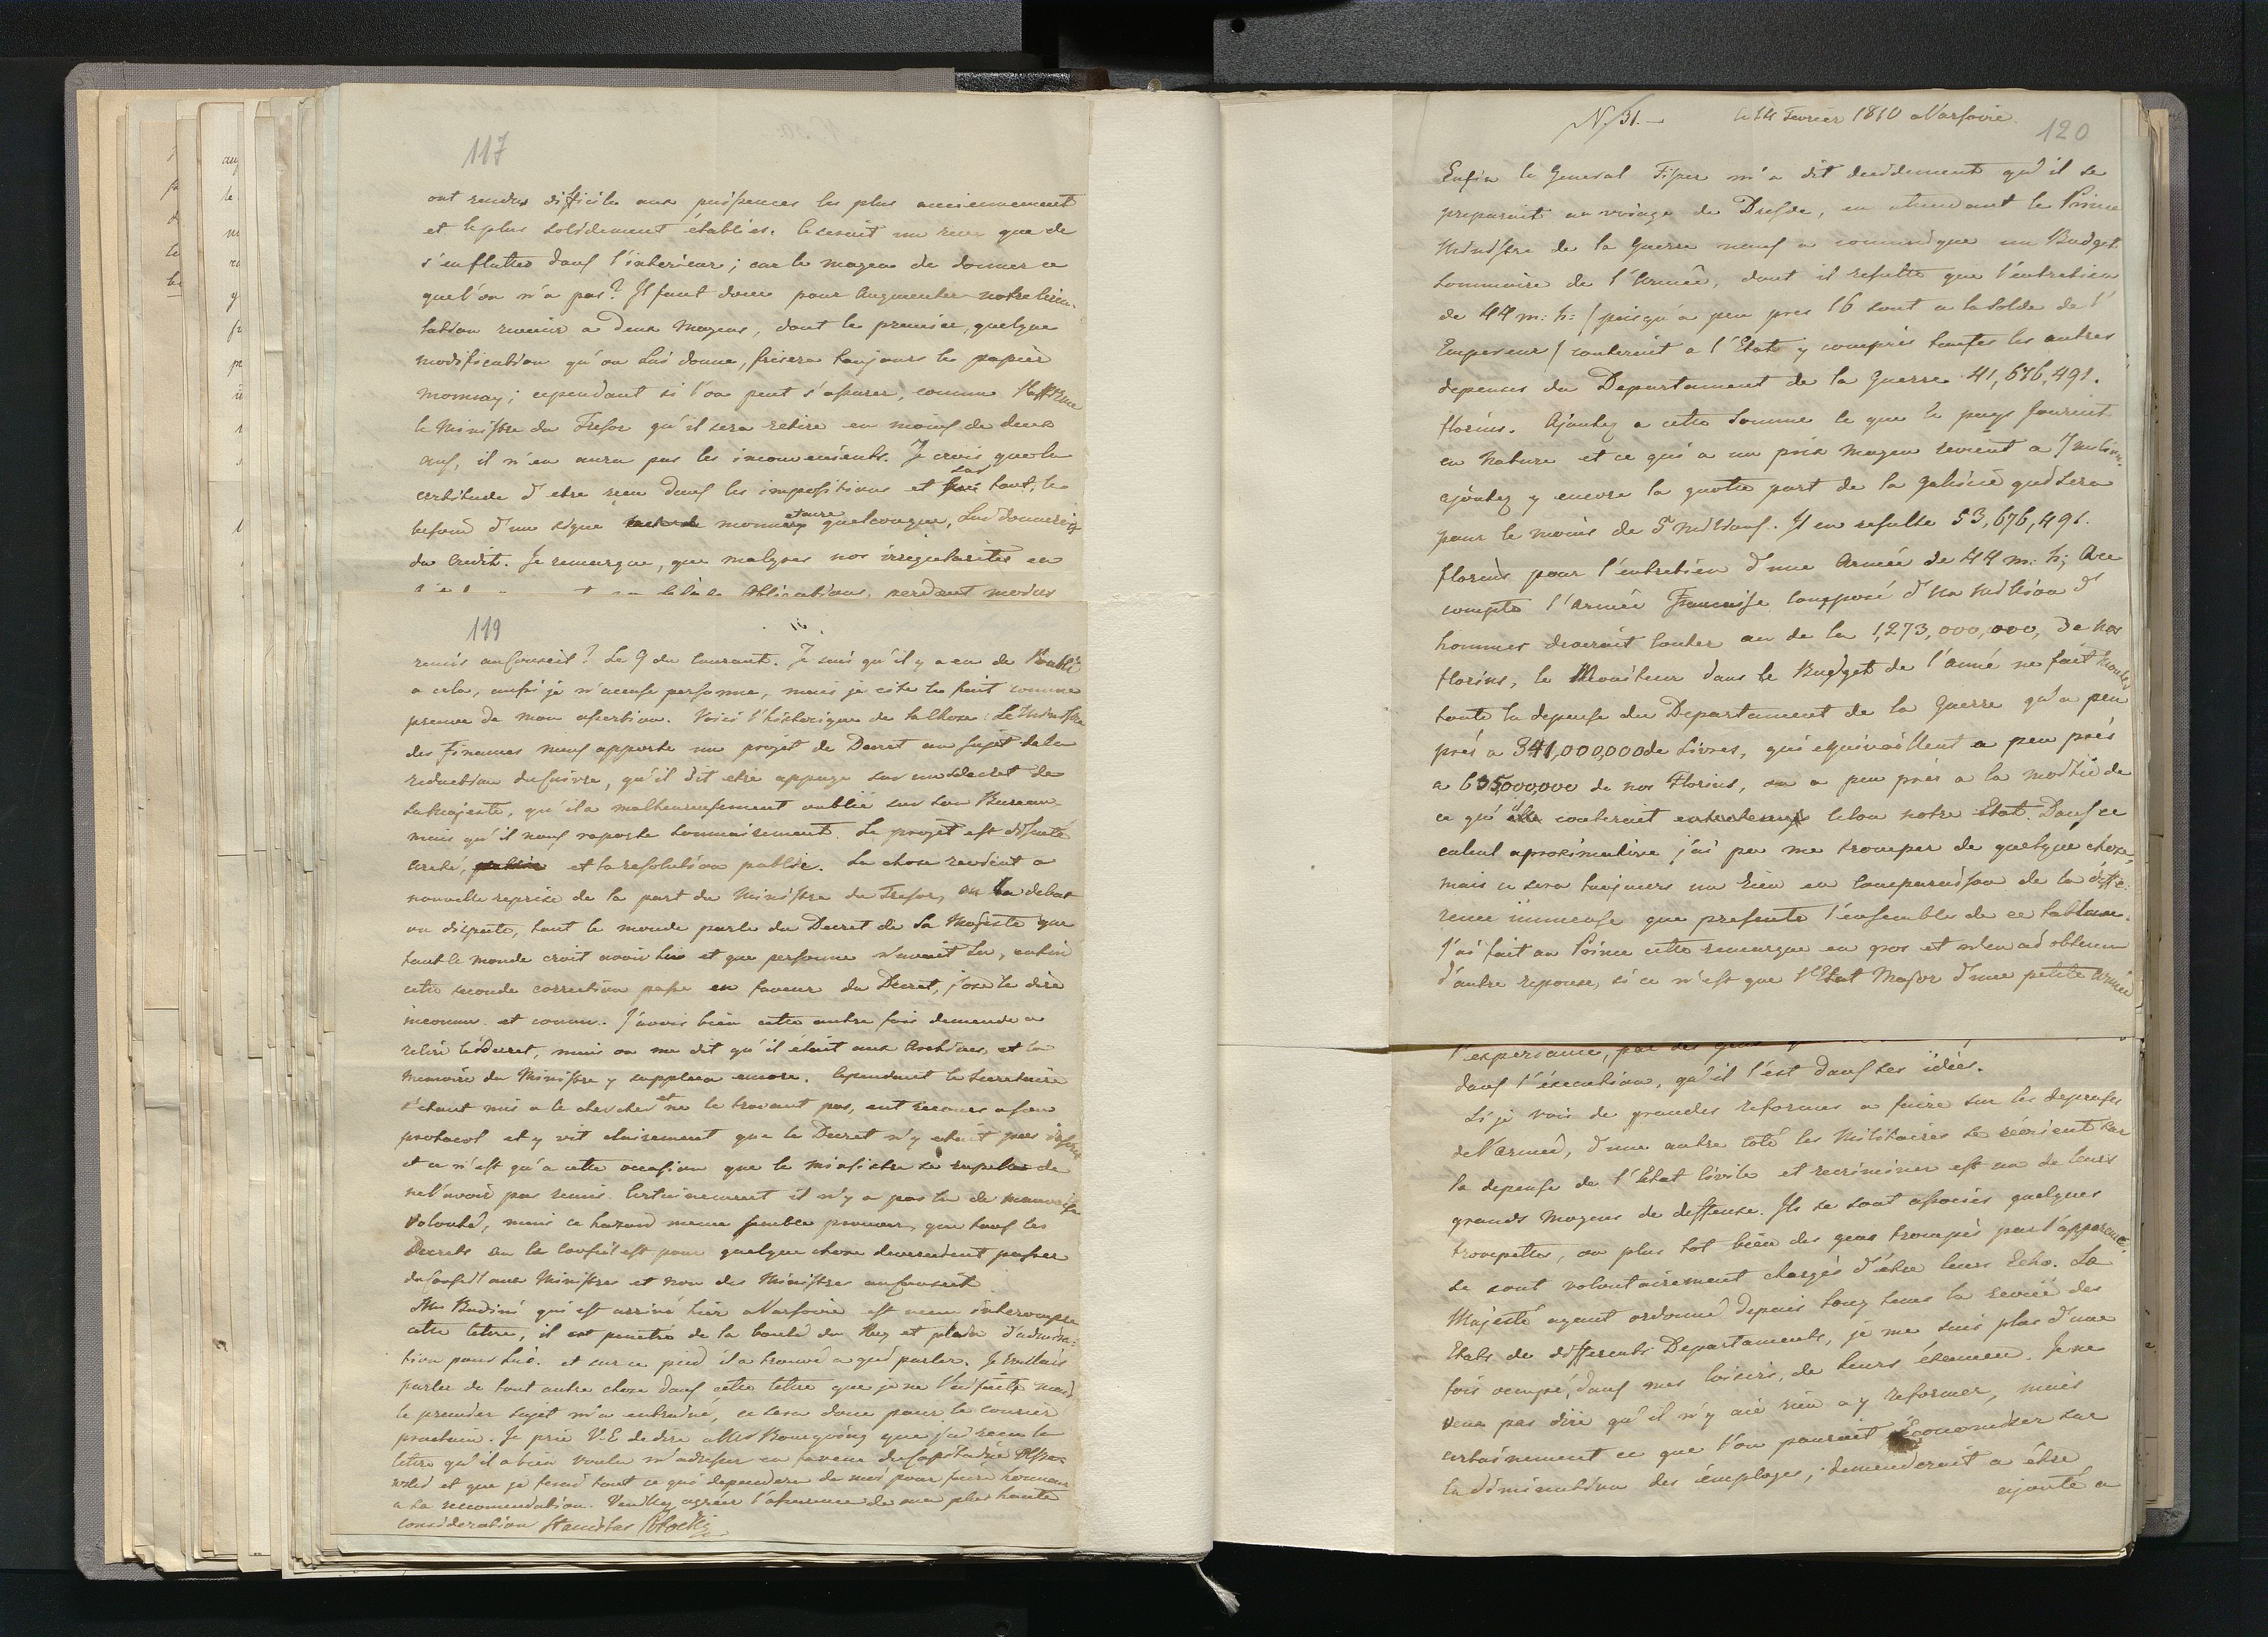 117
ont rendus difficile aux puissences les plus anciennement
et le plus solidement établies. Ce seroit un reve que de
s'en flatter dans l'interieur; car le moyen de donner ce
que l'on n'a pas? Il faut donc pour Augmenter notre circu-
lation revenir a deux moyens, dont le premier, quelque
modification qu'on lui donne, frisera toujours le papier
monnay; cependant si l'on peut s'assurer, comme l'affirme
le Ministre du Tresor qu'il sera retire en moins de deux
ans, il n'en aura pas les inconvenients. Je crois que la
certitude d'etre recu dans les impositions et sur tout, le
besoin d'un signe monnetaire quelconque, lui donneroit
du Credit. Je remarque, que malgres nos irregularites en
Obligations, perdent moins
119
remis au Conseil? Le 9 du Courant. Je sais qu'il y a eu de l'oublie
a cela, aussi je n'accuse personne, mais je cite le fait comme
preuve de mon assertion. Voici l'historique de la Chose: Le Ministre
des Finances nous apporte un projet de Decret au sujet de la
reduction du cuivre, qu'il dit etre appuye sur un decret de
Sa Majeste, qu'il a malheureusement oublié sur son Bureau
mais qu'il nous raporte sommairement. Le projet est discuté
arrete, et la resolution publie. La chose revient a
nouvelle reprise de la part du Ministre du Tresor, on en debat
on dispute, tout le monde parle du Decret de Sa Majeste que
tout le monde croit avoir lu et que personne n'avoit lu, enfin
cette seconde correction passe en faveur du Decret, j'ose le dire
inconnu et connu. J'avois bien cette autre fois demende a
relire le Decret, mais on me dit qu'il étoit aux Archives, et la
memoire du Ministre y supplea encore. Cependant le Secretaire
s'etant mis a le chercher et ne le trouvant pas, eut recours a son
protocol et y vit clairement que le Decret n'y etoit pas inscrit
et ce n'est qu'a cette occasion que le ministre se rapela de
ne l'avoir pas remis. Certainement il n'y a pas la de mauvaise
volonté, mais ce hazard meme semble prouver, que tous les
Decrets ou le Conseil est pour quelque chose devroient passer
du Conseil aux Ministres et non des Ministres au Conseil.
Mr Badini qui est arrivé hier a Varsovie est venu interompre
cette lettre, il est penetré de la bonté du Roy et plein d'admira-
tion pour Lui. et sur ce pied il a trouvé a qui parler. Je voulois
parler de tout autre chose dans cette lettre que je ne l'ai faite mais
le premier sujet m'a entrainé, ce sera donc pour le courier
prochain. Je prie V.E. de dire a Mr Bourgoing que j'ai recu la
lettre qu'il a bien voulu m'adresser en faveur du
et que je ferai tout ce qui dependera de moi pour faire honneur
a sa recomendation. Veuillez agréer l'assurance de ma plus haute
consideration Stanislas Potocki
N. 31.— le 14 Fevrier 1810 a Varsovie.
120
Enfin le General Fiszer m'a dit decidement qu'il se
preparoit au voiage de Dresde, en attendant le Prince
Ministre de la Guerre nous a comuniqué un Budget
sommaire de l'Armée, dont il resulte que l'entretien
de 44 m: h: / puisqu'a peu pres 16 sont a la solde de l'
Empereur / couteroit a l'Etat y compris toutes les autres
depenses du Departament de la Guerre 41,676,491.
florins. Ajoutez a cette somme ce que le pays fournit
en Nature et ce qui a un prix moyen revient a 7 milion.
ajoutez y encore la quotte part de la Galicie qui sera
pour le moins de 5 milions. Il en resulte 53,676,491.
florins pour l'entretien d'une Armée de 44 m: h; A ce
compte l'armée Francaise composé d'un million d'
hommes devroit couter au de la 1,273,000,000, de nos
florins, le Moniteur dans le Budget de l'anné ne fait monter
toute la depense du Departament de la Guerre qu'a peu
prés a 341,000,000 de Livres, qui equivaillent a peu prés
a 635,000,000 de nos Florins, ou a peu prés a la moitié de
ce qu'il couteroit selon notre Etat. Dans ce
calcul aproximative j'ai pu me tromper de quelque chose,
mais ce sera toujours un rien en comparaison de la diffe-
rence immense que presente l'ensemble de ce tableau.
J'ai fait au Prince cette remarque en gros et n'en ai obtenu
d'autre reponse, si ce n'est que l'Etat Major d'une petite Armée
l'experiance, par des gens
dans l'éxecution, qu'il l'est dans ses idées.
Si je vois de grandes reformes a faire sur les depenses
de l'armee, d'une autre coté les Militaires se récrient sur
la depense de l'Etat Civile et recriminer est un de leurs
grands moyens de deffense. Ils se sont associés quelques
trompettes, ou plus tot bien des gens trompés par l'apparence.
se sont volontairement chargés d'étre leurs Echo. Sa
Majesté ayent ordonné depuis long tems la revüe des
Etats de differents Departaments, je me suis plus d'une
fois occupé, dans mes loisirs, de leurs éxamen. Je ne
veux pas dire qu'il n'y aie rien a y reformer, mais
certainement ce que l'on pouroit économiser sur
la diminution des emploges, demenderoit a étre
ajouté a